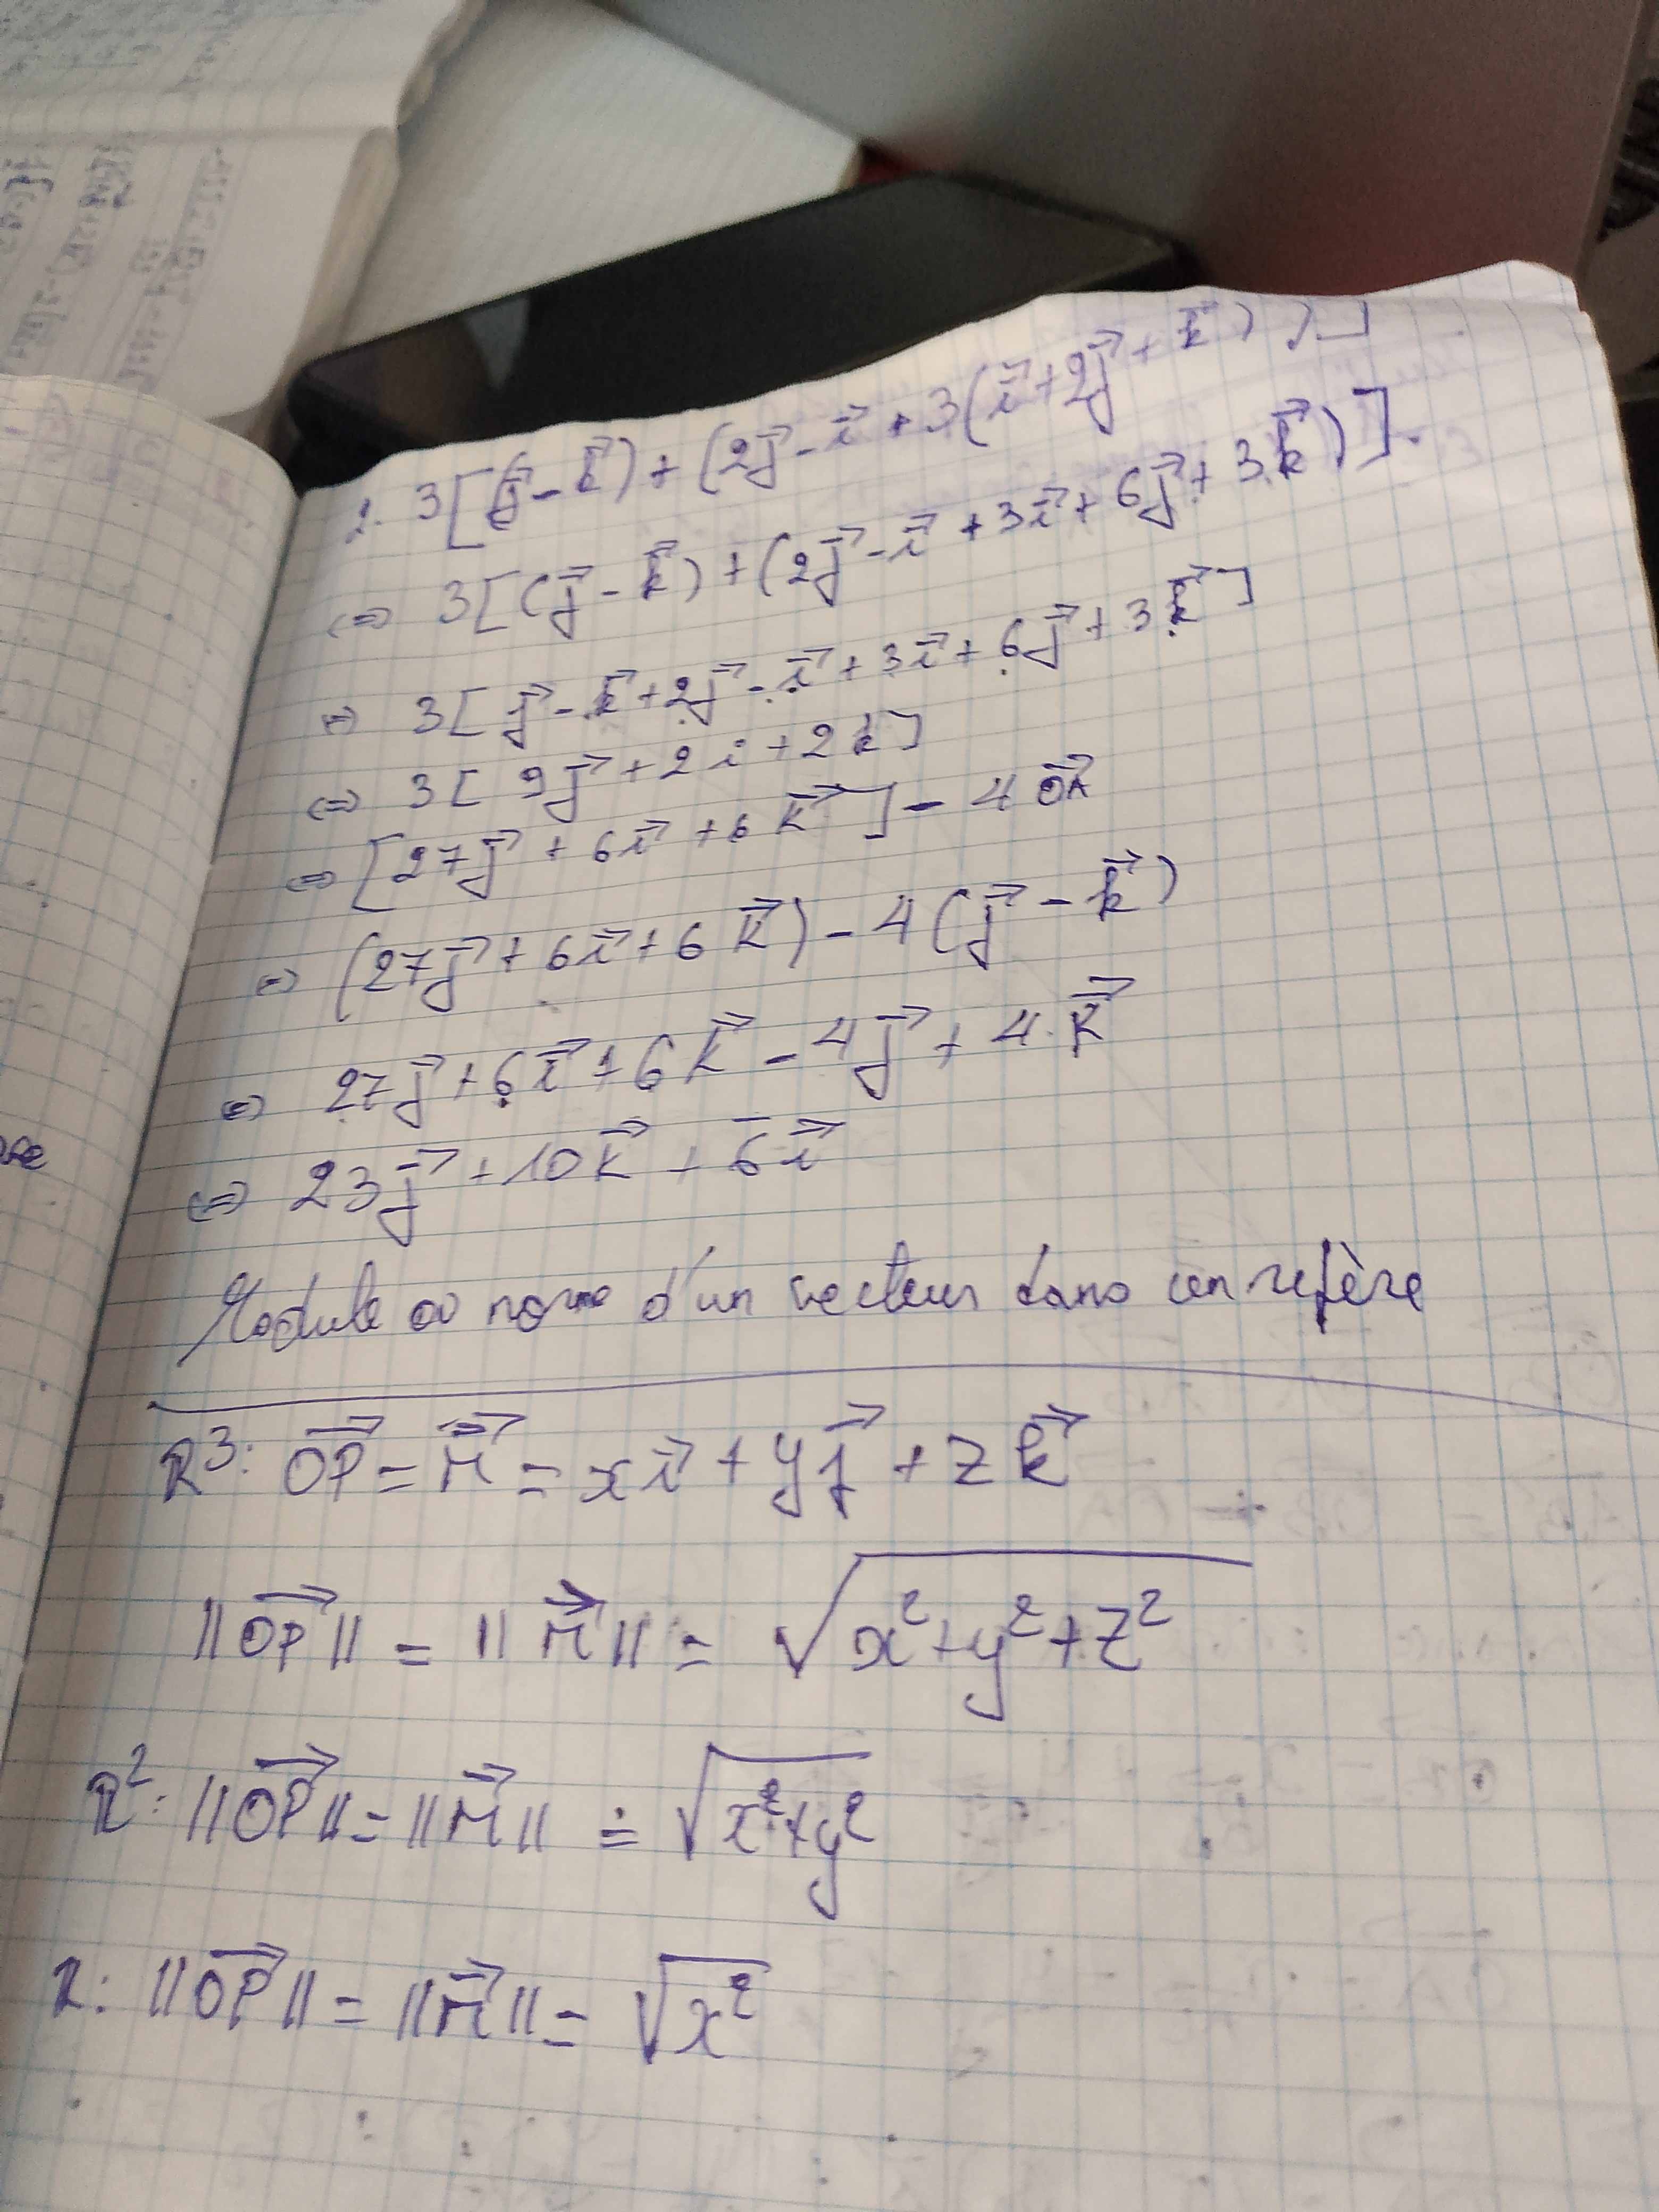 2. 3[(j⃗ - k⃗) + (2j⃗ - i⃗ + 3(i⃗ + 2j⃗ + k⃗))]
⇔ 3[(j⃗ - k⃗) + (2j⃗ - i⃗ + 3i⃗ + 6j⃗ + 3k⃗)].
⇔ 3[j⃗ - k⃗ + 2j⃗ - i⃗ + 3i⃗ + 6j⃗ + 3k⃗]
⇔ 3[9j⃗ + 2i + 2k]
⇔ [27j⃗ + 6i⃗ + 6k⃗] - 4OA⃗
⇔ (27j⃗ + 6i⃗ + 6k⃗) - 4(j⃗ - k⃗)
⇔ 27j⃗ + 6i⃗ + 6k⃗ - 4j⃗ + 4.k⃗
⇔ 23j⃗ + 10k⃗ + 6i⃗
Module ou norme d'un vecteur dans un repère
R³: OP⃗ = r⃗ = xi⃗ + yj⃗ + zk⃗
||OP⃗|| = ||r⃗|| = √(x² + y² + z²)
R²: ||OP⃗|| = ||r⃗|| = √(x² + y²)
R: ||OP⃗|| = ||r⃗|| = √x²